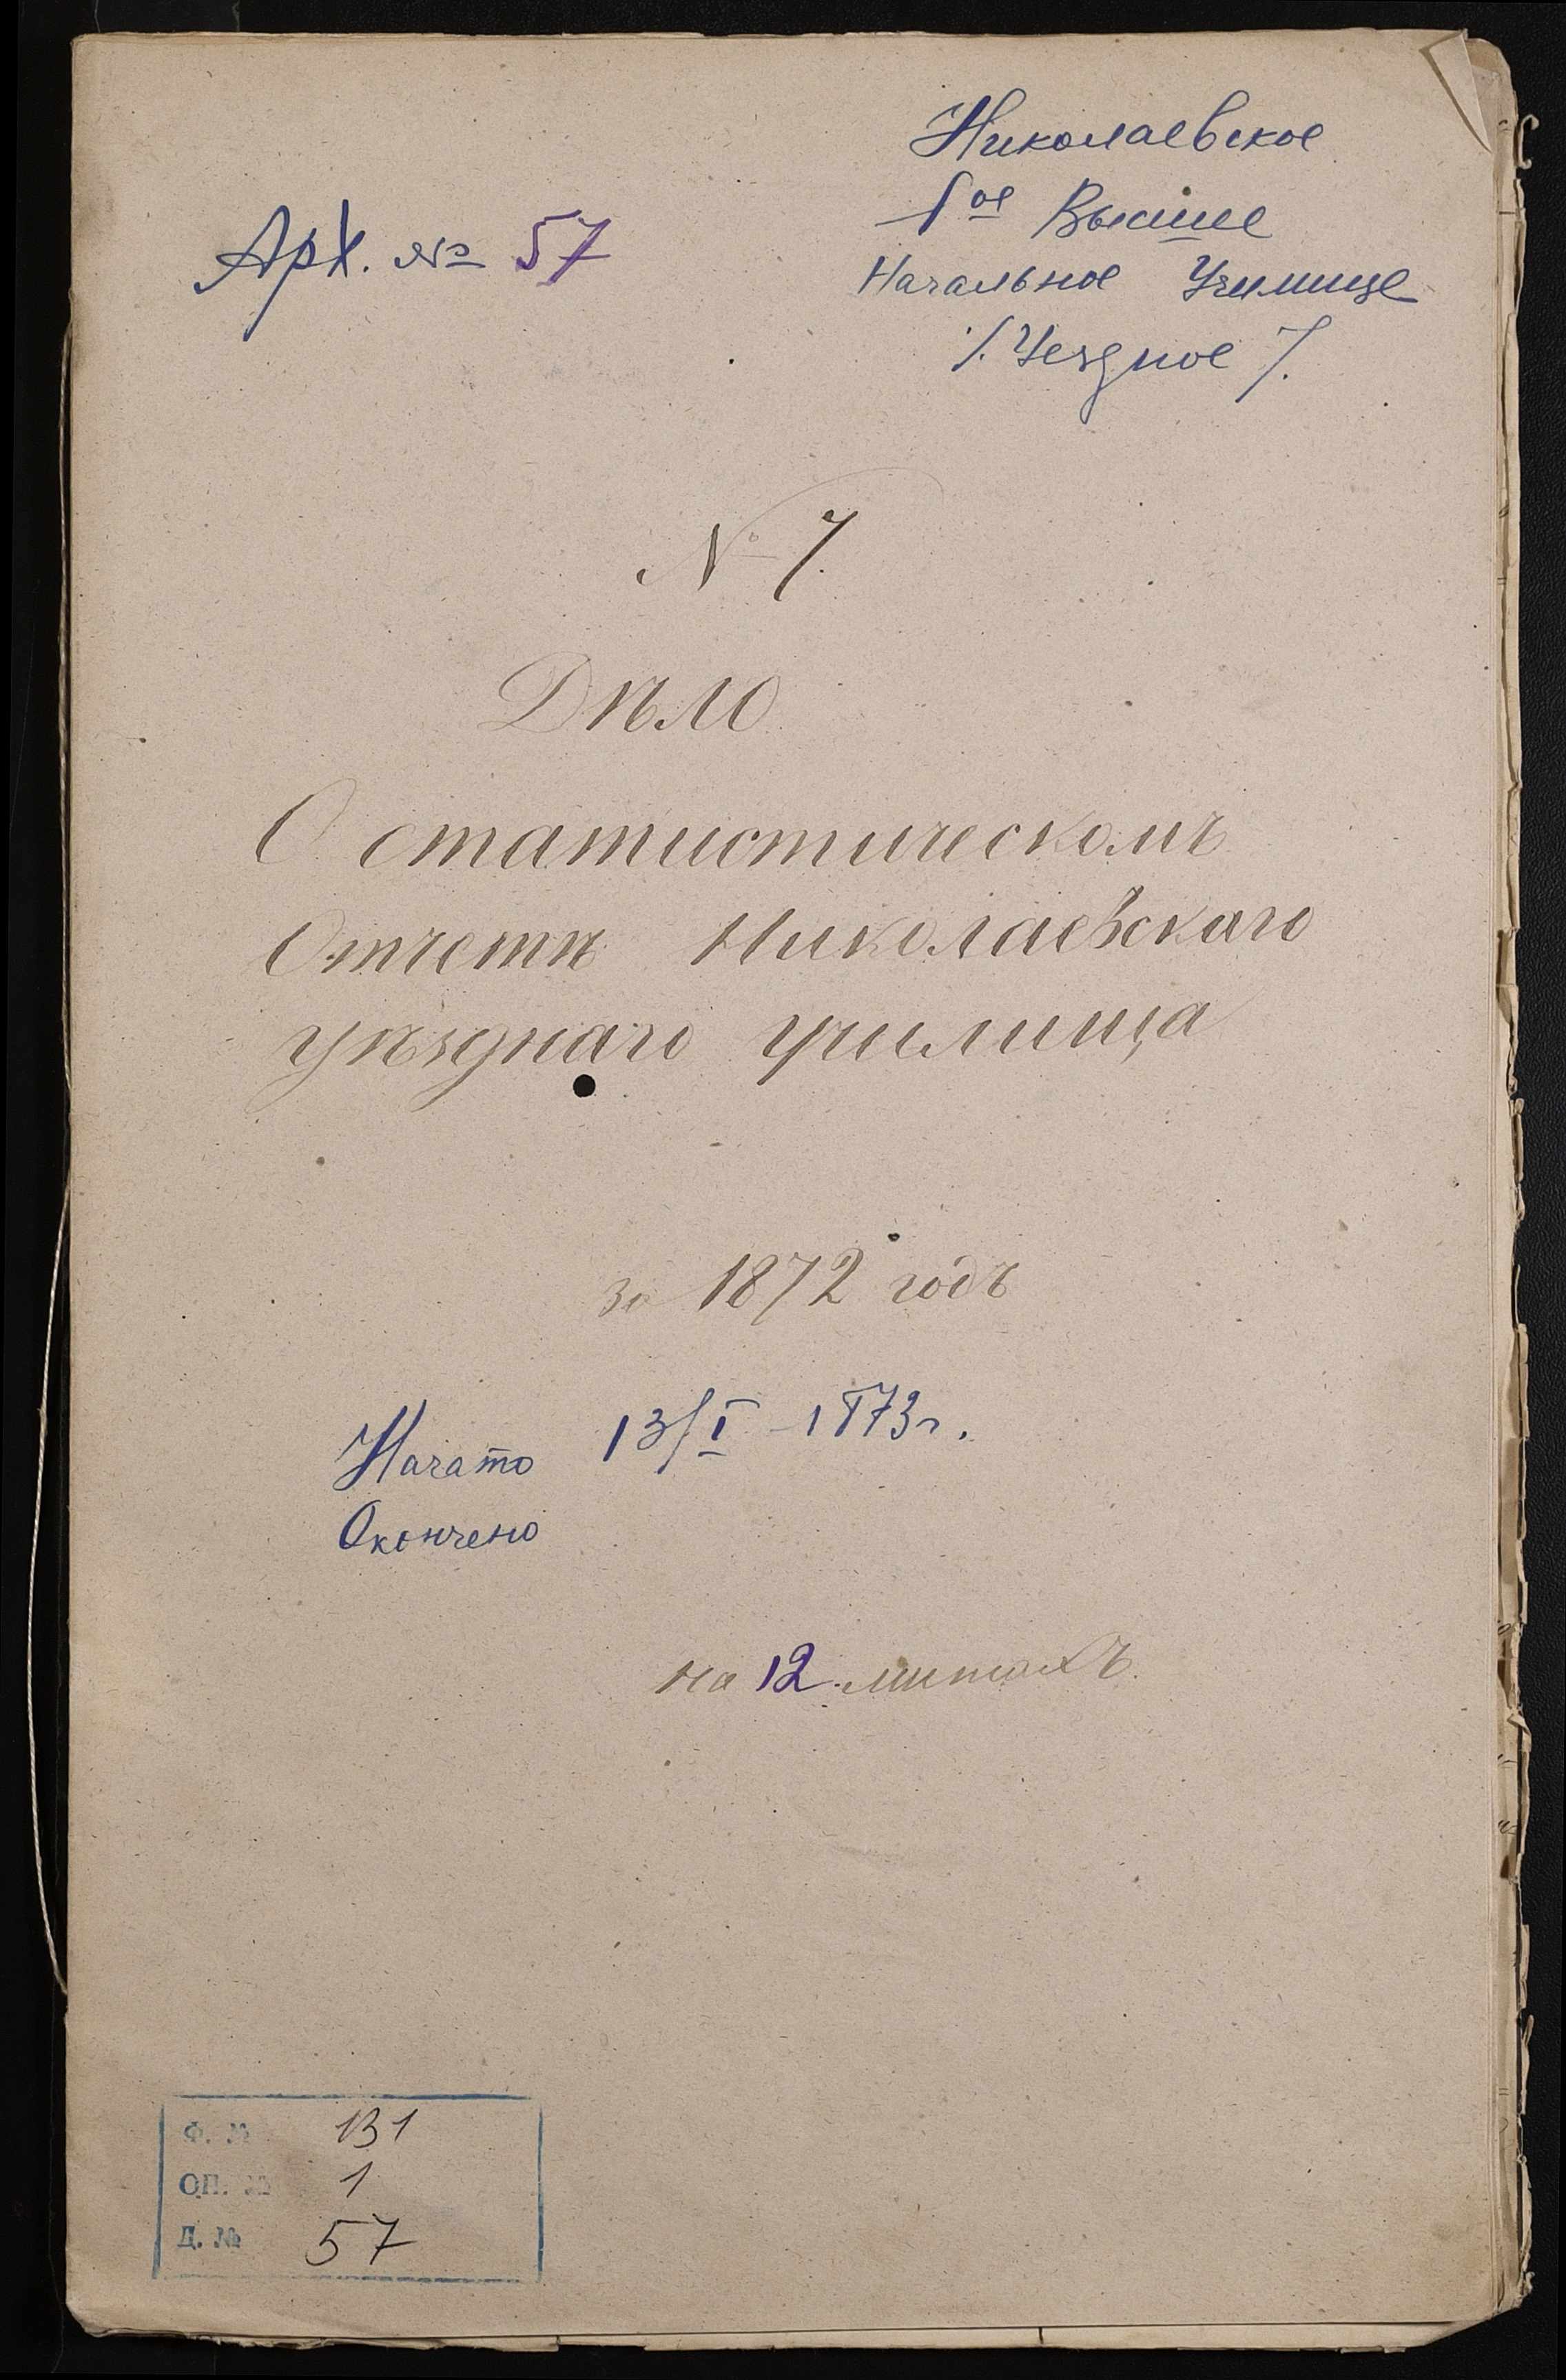 Николаевское
1ое Высшее
Начальное Училище
/. Уездное /.
Арх. № 57
№ 7.
Дѣло
О статистическомъ
Отчетѣ Николаевскаго
уѣзднаго училища
за 1872 годъ
Начато 13/I - 1873 г.
Окончено
на 12 листахъ.
Ф. № 131
ОП. № 1
Д. № 57